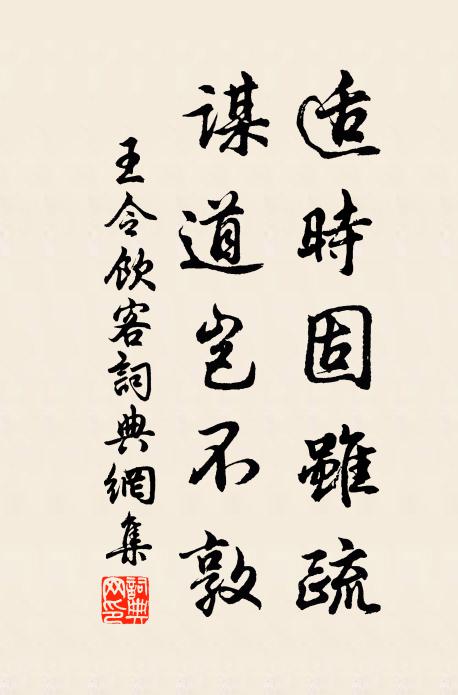 适時固雖疏
謀道豈不敦
王令飲客詞典網集
詞典网印